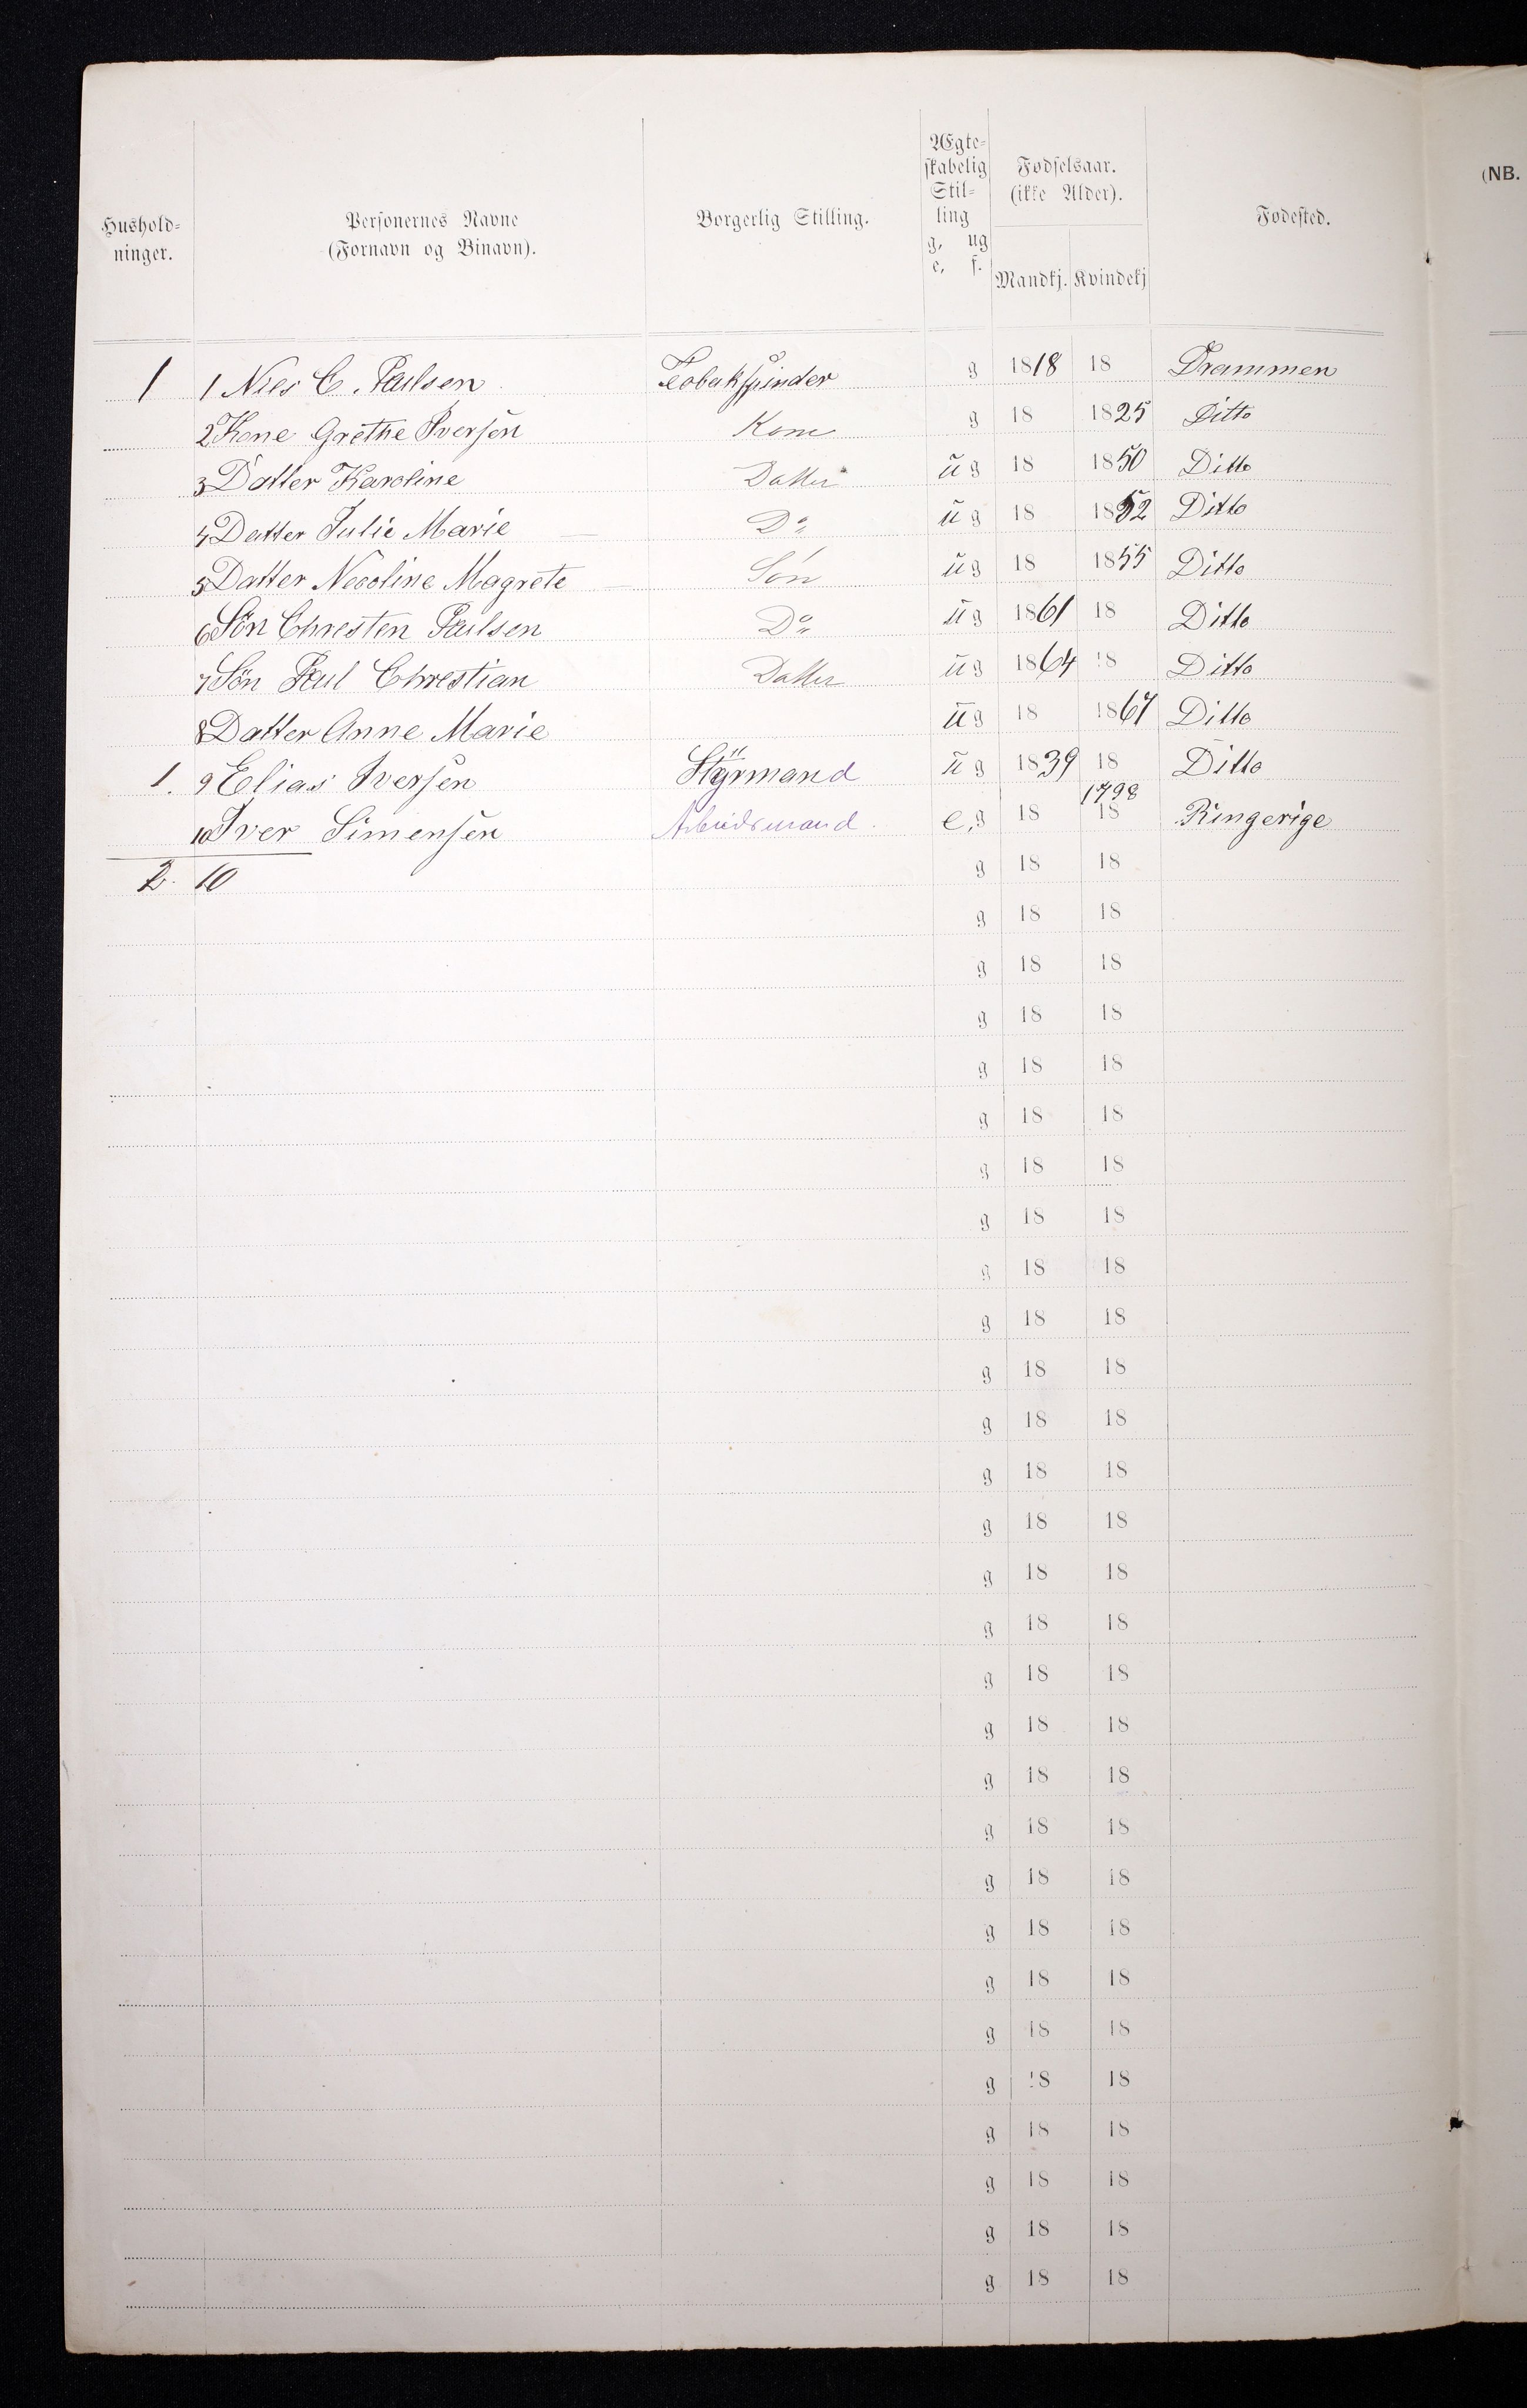 Hushold-
ninger.
Personernes Navne
(Fornavn og Binavn).
Borgerlig Stilling.
Ægte-
skabelig
Stil-
ling
g, ug
e, f.
Fødselsaar.
(ikke Alder).
Mandkj. Kvindekj
Fødested.
(NB.
1 1 Niels C. Paulsen Tobakspinder g 1818 18 Drammen
2 Kone Grethe Iversen Kone g 18 1825 Ditto
3 Datter Karoline Datter ug 18 1850 Ditto
4 Datter Julie Marie Do ug 18 1852 Ditto
5 Datter Necoline Magrete Søn ug 18 1855 Ditto
6 Sön Chresten Paulsen Do ug 1861 18 Ditto
7 Sön Paul Chrestian Datter ug 1864 18 Ditto
8 Datter Anne Marie ug 18 1867 Ditto
1. 9 Elias Iversen Styrmand ug 1839 18 Ditto
1798
10 Iver Simensen Arbeidsmand. e,g 18 18 Ringerige
2. 10 g 18 18
g 18 18
g 18 18
g 18 18
g 18 18
g 18 18
g 18 18
g 18 18
g 18 18
g 18 18
g 18 18
g 18 18
g 18 18
g 18 18
g 18 18
g 18 18
g 18 18
g 18 18
g 18 18
g 18 18
g 18 18
g 18 18
g 18 18
g 18 18
g 18 18
g 18 18
g 18 18
g 18 18
g 18 18